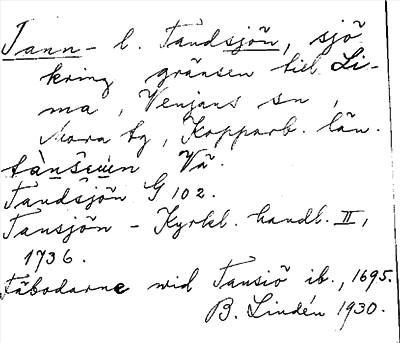 Tann- l. Tandsjön, sjö
kring gränsen till Li-
ma, Venjans sn,
Mora tg, Kopparb. län.
Vä
Tandsjön G 102.
Tansjön - Kyrkl. handl. II,
1736.
Fäbodarne wid Tansiö ib., 1695.
B. Lindén 1930.